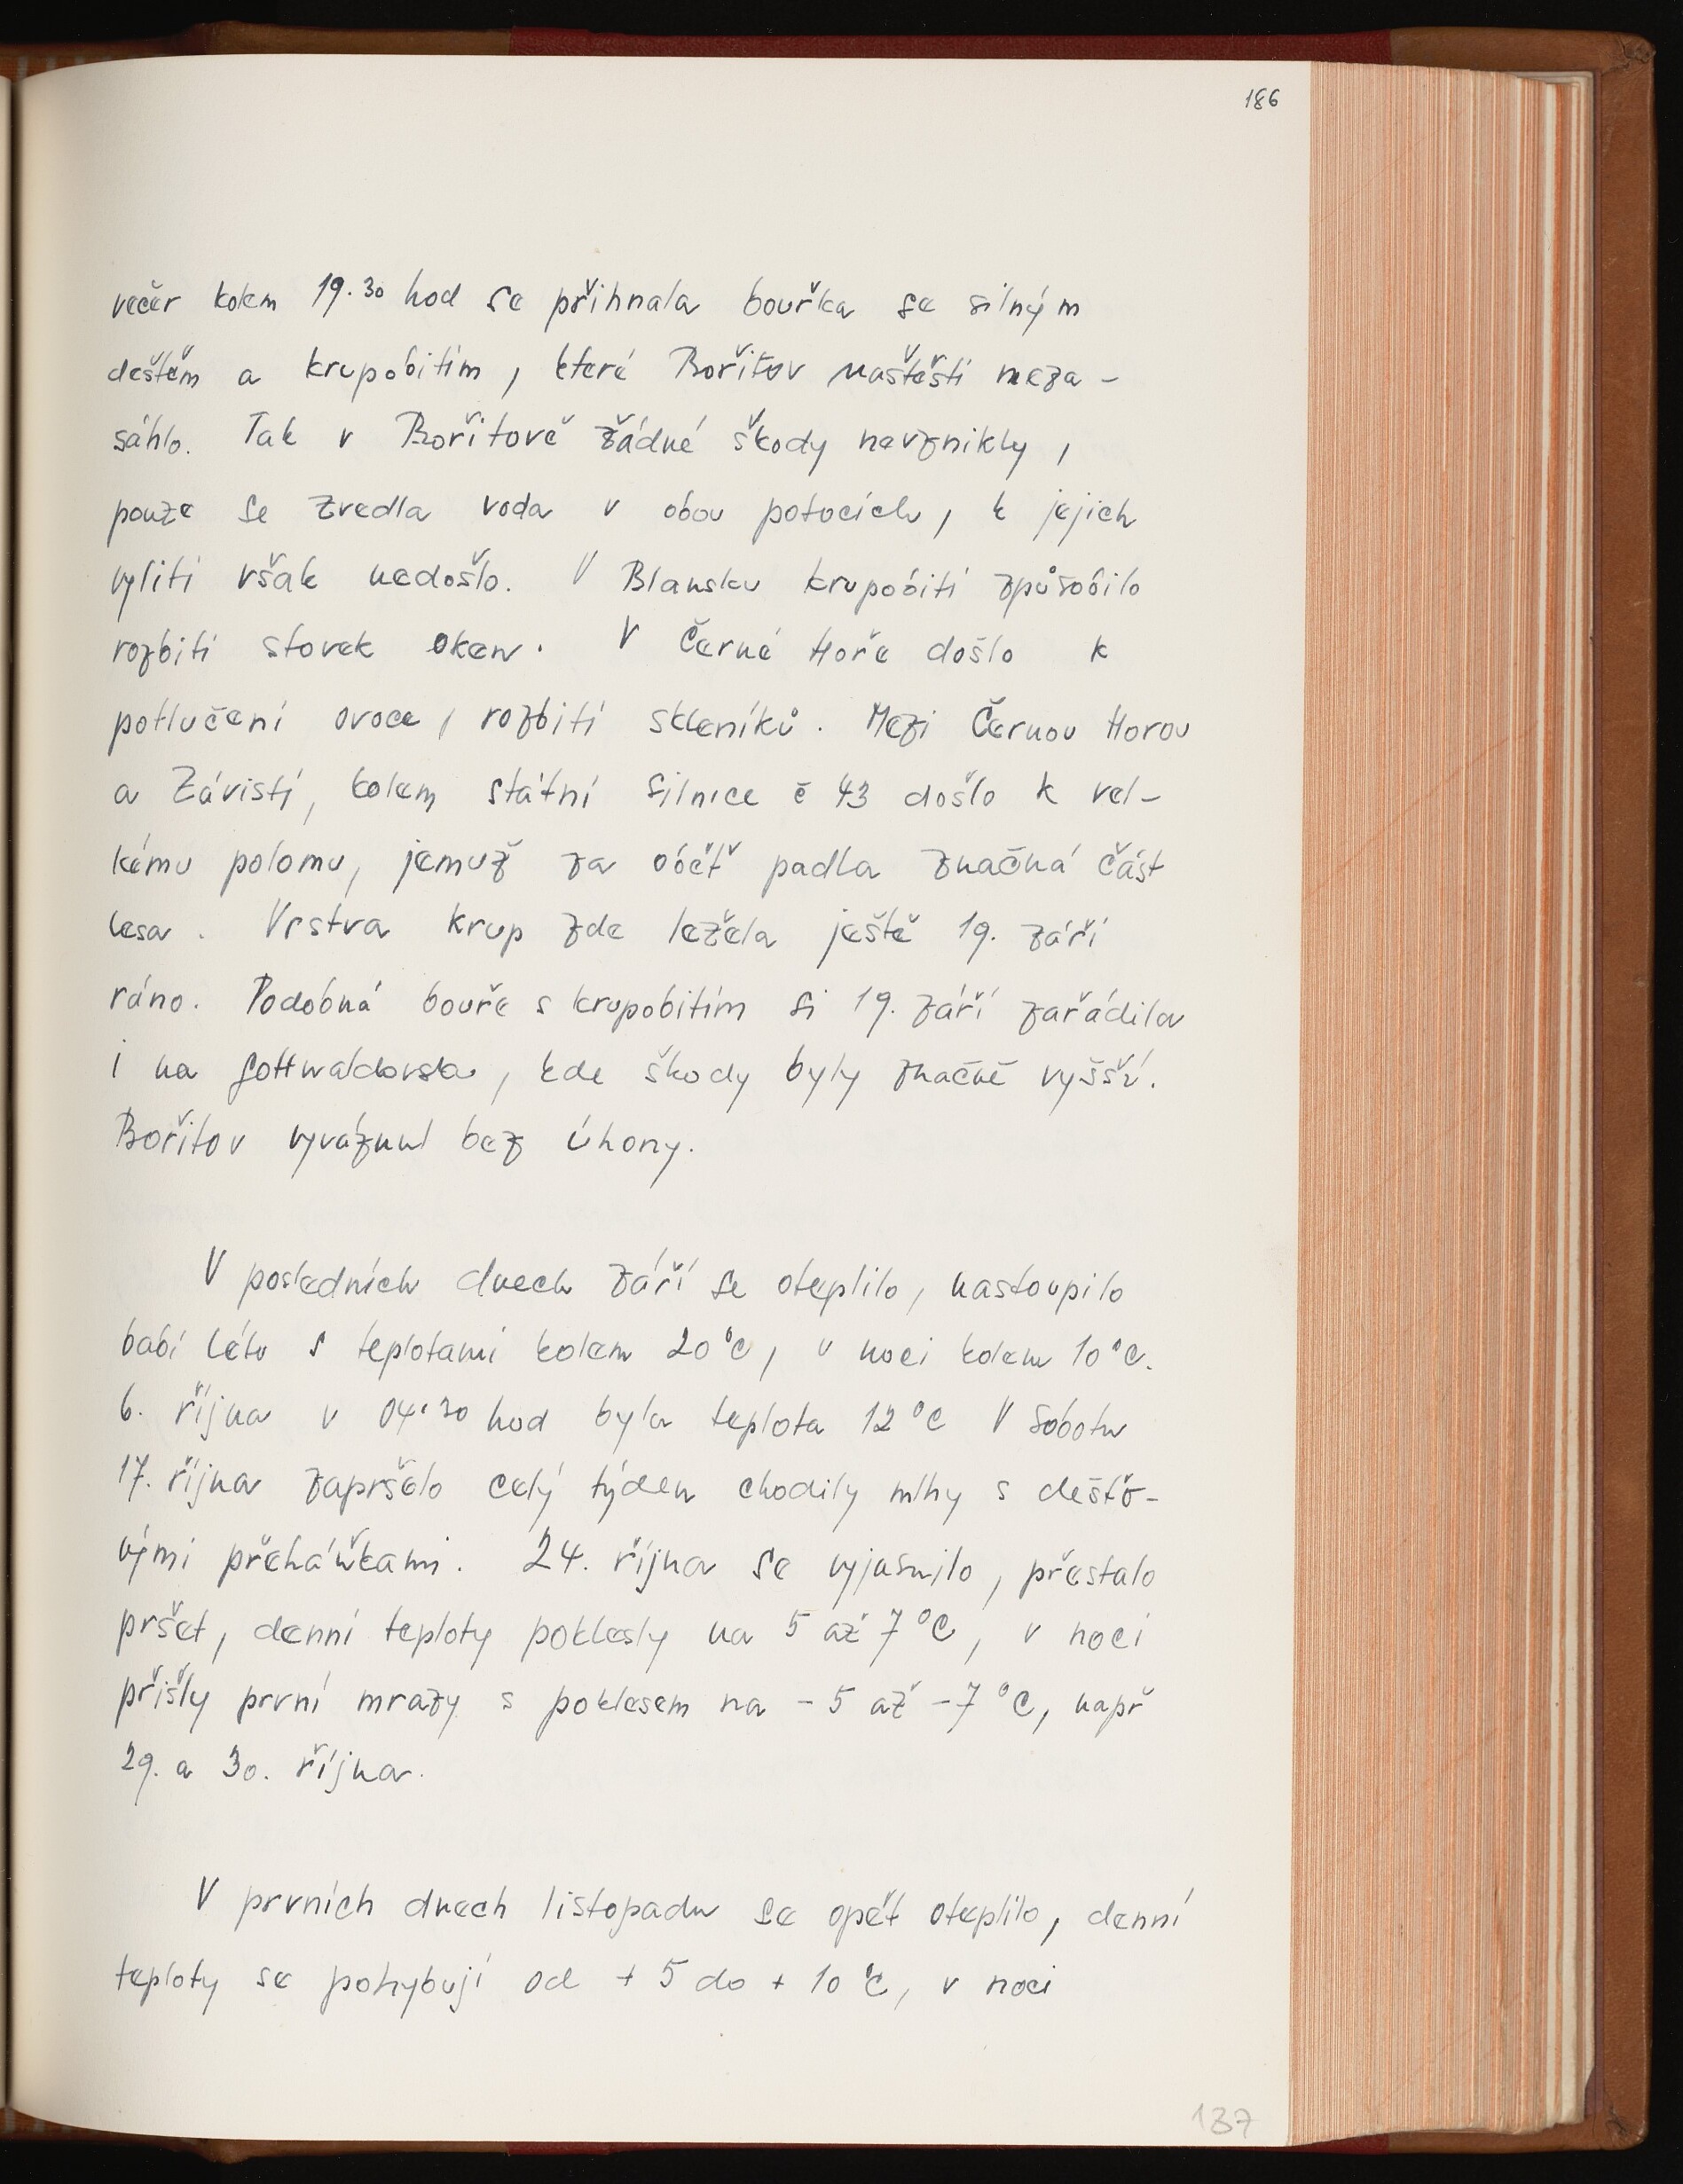 186
večer kolem 19.30 hod se přihnala bouřka se silným
deštěm a krupobitím, které Bořitov naštěstí neza-
sáhlo. Tak v Bořitově žádné škody nevznikly,
pouze se zvedla voda v obou potocích, k jejich
vylití však nedošlo. V Blansku krupobití způsobilo
rozbití stovek oken. V Černé Hoře došlo k
potlučení ovoce, rozbití skleníků. Mezi Černou Horou
a Závistí, kolem státní silnice č 43 došlo k vel-
kému polomu, jemuž za oběť padla značná část
lesa. Vrstva krup zde ležela ještě 19. září
ráno. Podobná bouře s krupobitím si 19. září zařádila
i na Gottwaldovsku, kde škody byly značně vyšší.
Bořitov vyváznul bez úhony.
V posledních dnech září se oteplilo, nastoupilo
babí léto s teplotami kolem 20°C, v noci kolem 10°C.
6. října v 04.30 hod byla teplota 12°C V sobotu
17. října zapršelo celý týden chodily mlhy s dešťo-
vými přeháňkami. 24. října se vyjasnilo, přestalo
pršet, denní teploty poklesly na 5 až 7°C, v noci
přišly první mrazy s poklesem na -5 až -7°C, např
29. a 30. října.
V prvních dnech listopadu se opět oteplilo, denní
teploty se pohybují od +5 do +10°C, v noci
187